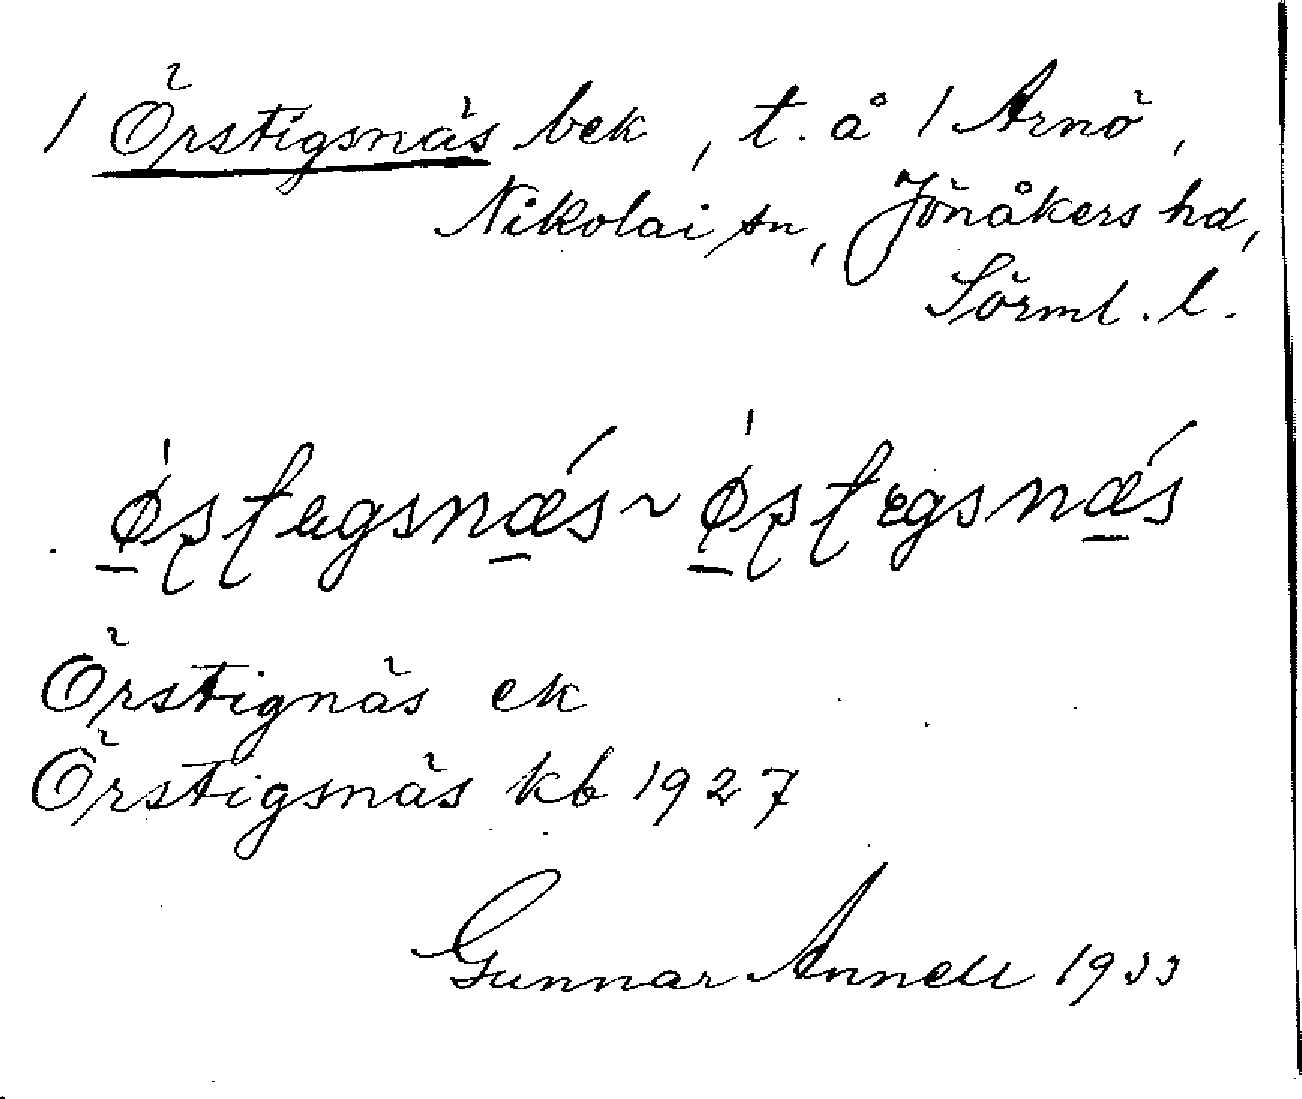 / Örstigsnäs bek, t. å / Arnö,
Nikolai sn, Jönåkers hd,
Sörml. l.
Örstignäs ek
Örstigsnäs kb 1927
Gunnar Annell 1933